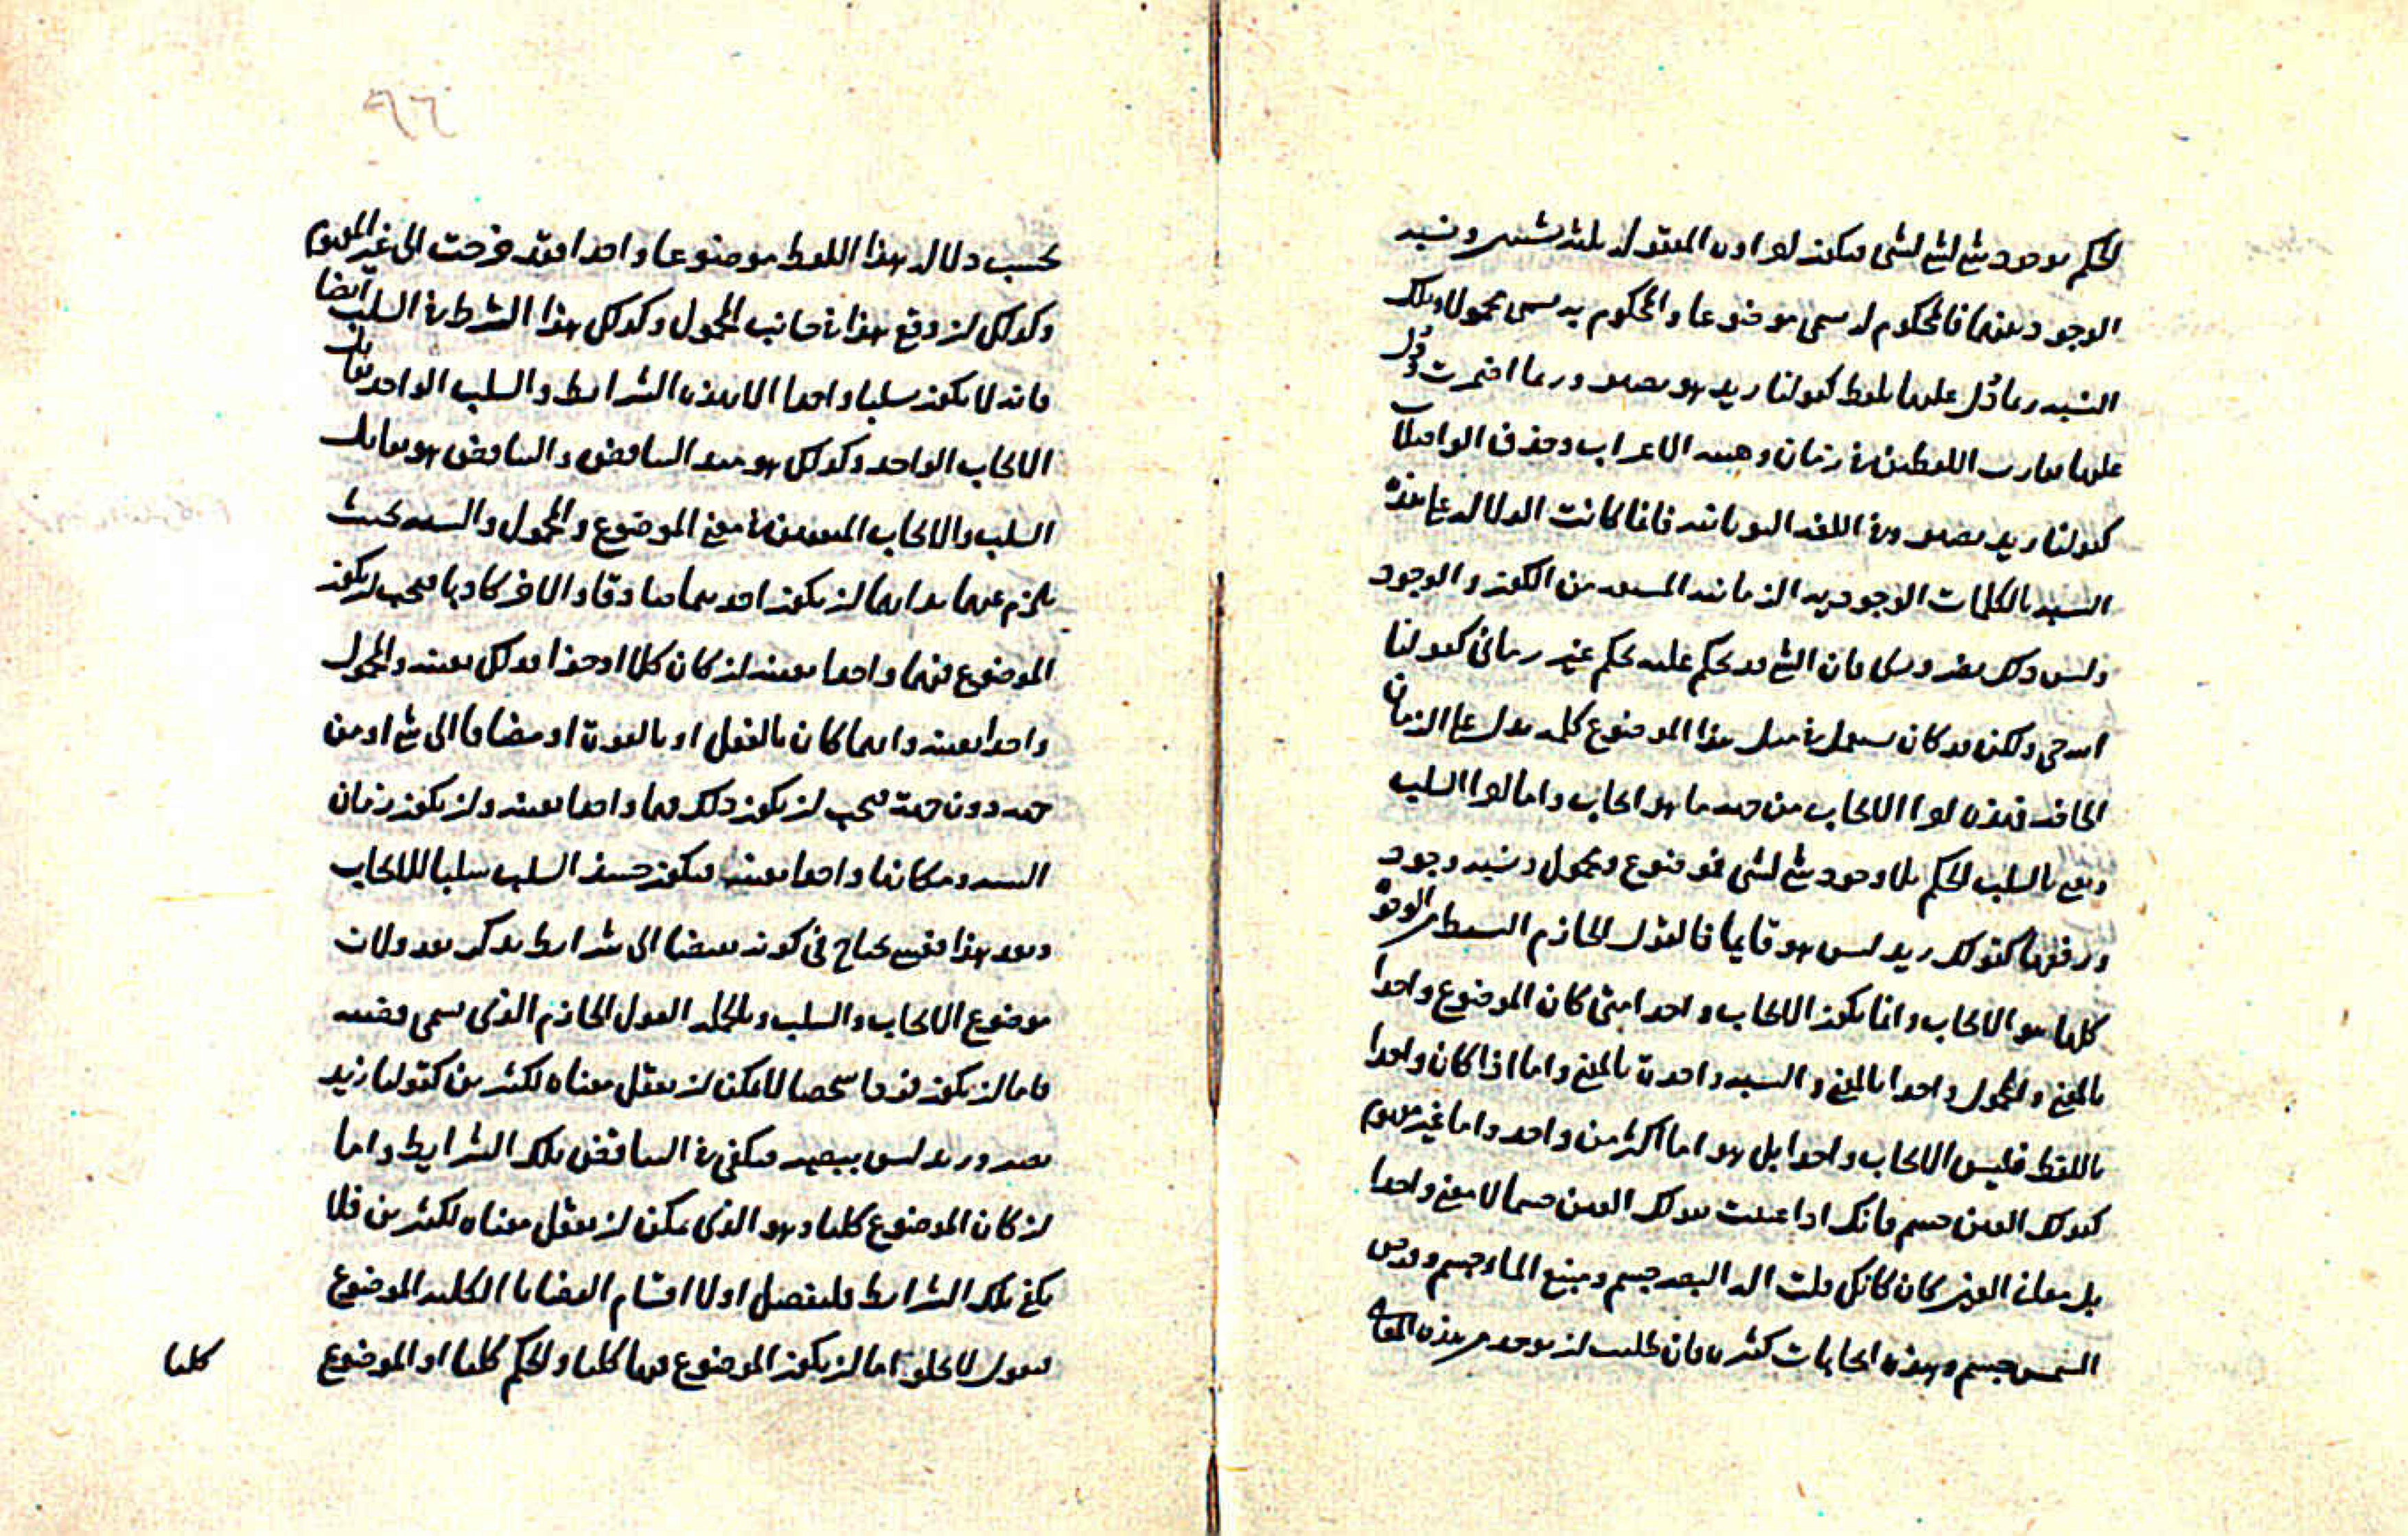 الحكم بوجود شئ لشئ فيكون له اول المقول ثلثة شيئين ونسبة
الوجود بينهما فالمحكوم له يسمى موضوعا والمحكوم به يسمى محمولا وتلك
النسبة ربما دُل عليها بلفظ كقولنا زيد هو بصير وربما اضمرت ودل
عليها تقارب اللفظين في زمان وهيئة الاعراب وحذف الواصلات
كقولنا زيد بصير وفي اللغة اليونانية فانما كانت الدلالة على هذه
النسبة بالكلمات الوجودية الزمانية المشتقة من الكون والوجود
وليس ذلك بضروري فان الشئ قد يحكم عليه بحكم غير زماني كقولنا
الله حي ولكن قد كان يستعمل في مثل هذا الموضوع كلمة تدل على الزمان
الحاضر فهذه لواحق الايجاب من جهة ما هو ايجاب واما لواحق السلب
ونعني بالسلب الحكم بلا وجود شئ لشئ فموضوع ومحمول ونسبة وجود
ورفعها كقولك زيد ليس هو قايما فالقول الجازم البسيط من الوجوه
كلها هو الايجاب وانما يكون الايجاب واحدا متى كان الموضوع واحدا
بالمعنى والمحمول واحدا بالمعنى والنسبة واحدة بالمعنى واما اذا كان واحدا
باللفظ فليس الايجاب واحدا بل هو اما اكثر من واحد واما غير مفهوم
كقولك العين جسم فانك اذا عنيت بقولك العين جسما لا معنى واحدا
بل معاني العين كان كانك قلت آلة البصر جسم ومنبع الماء جسم وقرص
الشمس جسم وهذه ايجابات كثيرة فان طلبت ان يوجد من هذه المعاني
بحسب دلالة هذا اللفظ موضوعا واحدا فقد خرجت الى غير المفهوم
وكذلك ان وقع هذا في جانب المحمول وكذلك هذا الشرط في السلب ايضا
فانه لا يكون سلبا واحدا الا بهذه الشرايط والسلب الواحد يقابل
الايجاب الواحد وكذلك هو مبدء التناقض والتناقض هو تقابل
السلب والايجاب المتعينين في معنى الموضوع والمحمول والنسبة بحيث
يلزم عنهما بذاتهما ان يكون احديهما صادقا والاخر كاذبا فيجب ان يكون
الموضوع فيهما واحدا بعينه ان كان كلا او جزءا فذلك بعينه والمحمول
واحدا بعينه وايهما كان بالفعل او بالقوة او مضافا الى شئ او من
جهة دون جهة فيجب ان يكون ذلك فيهما واحدا بعينه وان يكون زمان
النسبة ومكانها واحدا بعينه فيكون حينئذ السلب سلبا للايجاب
وبعد هذا فقد يحتاج في كونه نقيضا الى شرايط تذكر بعد ولان
موضوع الايجاب والسلب وبالجملة القول الجازم الذي يسمى قضية
فاما ان يكون لفظا شخصا لا يمكن ان يعقل معناه لكثيرين كقولنا زيد
بصير وزيد ليس ببصير فيكفي في التناقض تلك الشرايط واما
ان كان الموضوع كليا وهو الذي يمكن ان يعقل معناه لكثيرين فلا
يكفي تلك الشرايط فلنفصل اولا اقسام القضايا الكلية الموضوع
فنقول لا يخلو اما ان يكون الموضوع فيها كليا والحكم كليا او الموضوع
كليا
٩٦